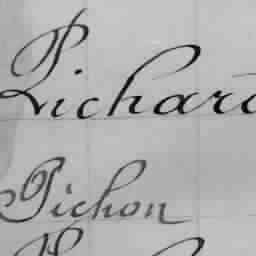 Richard
Pichon